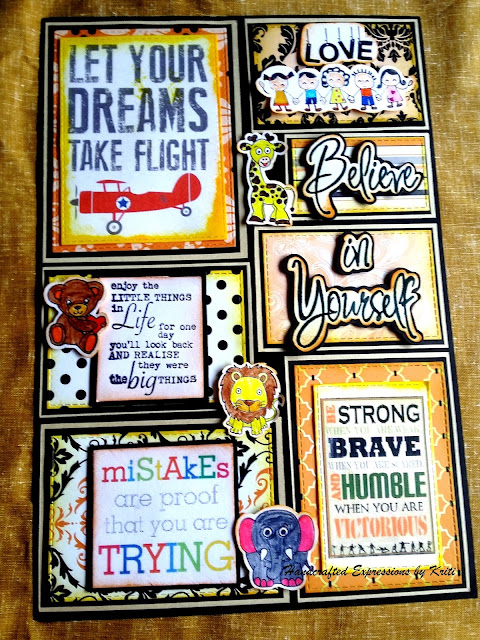 LET YOUR
DREAMS
TAKE FLIGHT
LOVE
Believe
in
Yourself
enjoy the
LITTLE THINGS
in Life for one
day
you'll look back
AND REALISE
they were
the big THINGS
miStAkEs
are proof
that you are
TRYING
BE STRONG
WHEN YOU ARE WEAK
BRAVE
WHEN YOU ARE SCARED
AND HUMBLE
WHEN YOU ARE
VICTORIOUS
Handcrafted Expressions by Kriti